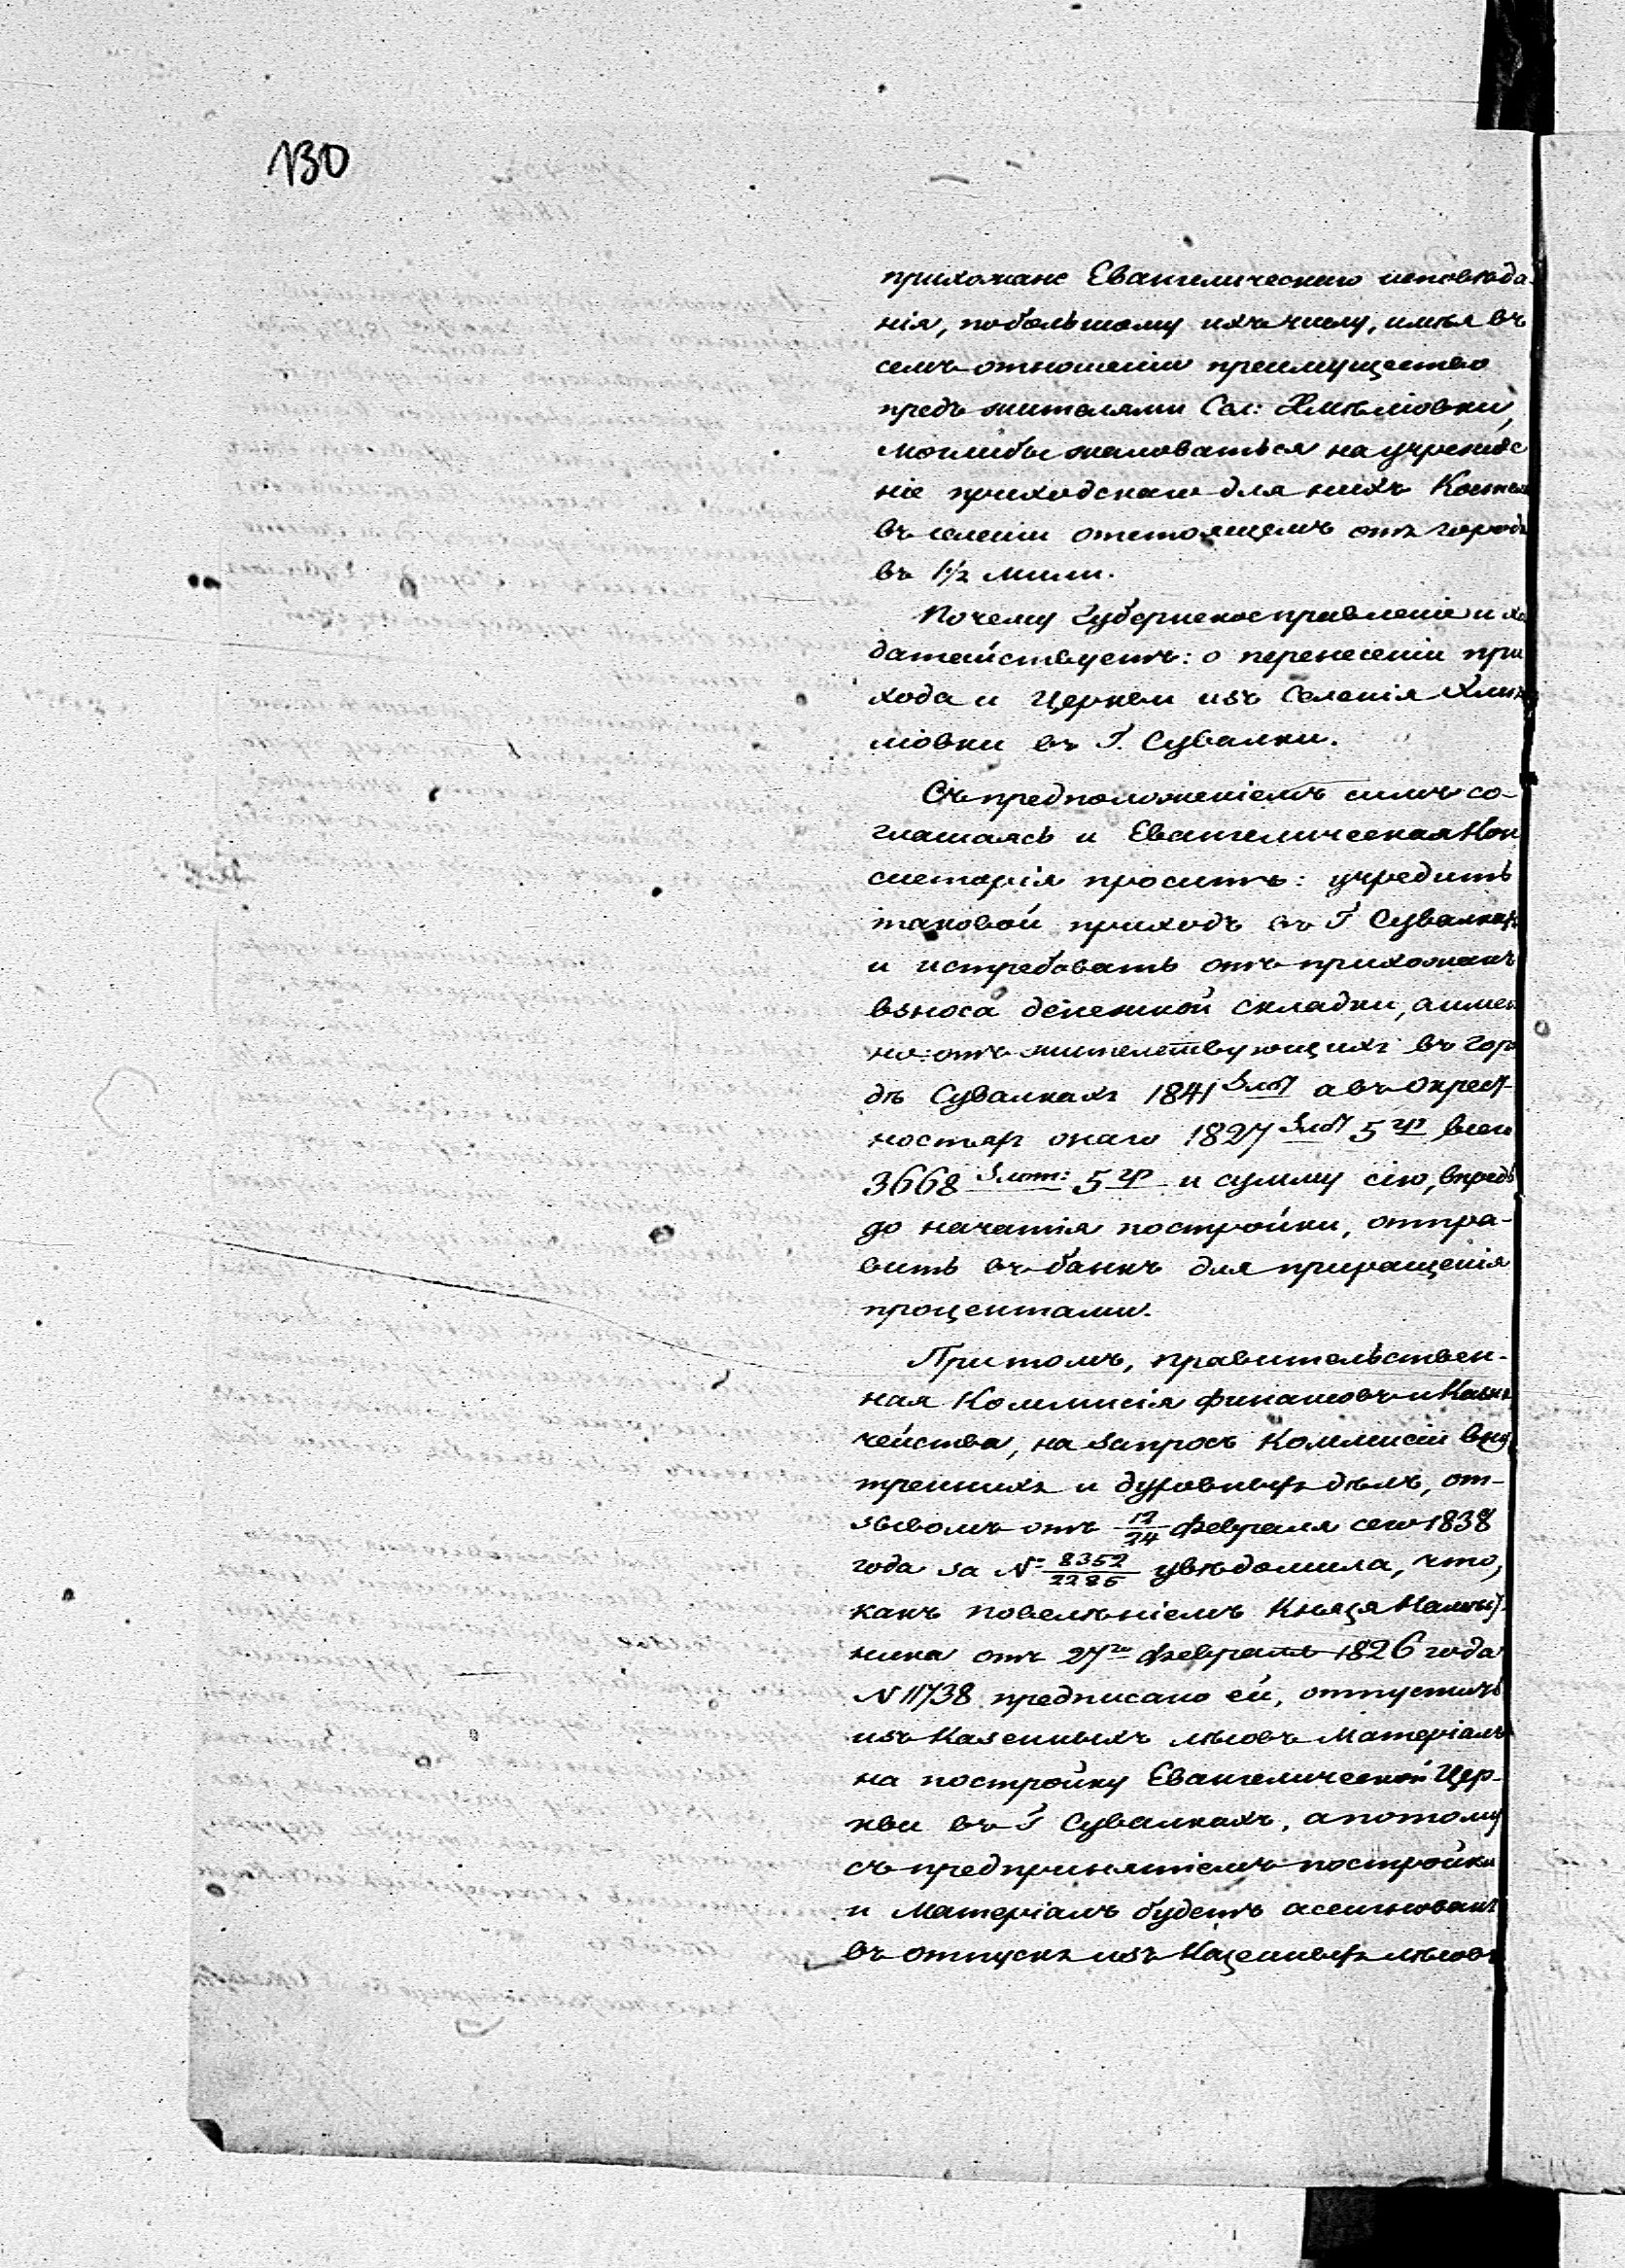 130
прихожане Евангелическаго исповѣда-
нія, по большому ихъ числу, имѣя въ
семъ отношеніи преимущество
предъ жителями Сел: Хмѣлювки,
могли бы жаловаться на учрежде
ніе приходскаго для нихъ Костела
въ селеніи отстоящемъ отъ города
въ 1½ мили.
Почему Губернское правленіе и хо
датайствуетъ: о перенесеніи при
хода и Церкви изъ Селенія Хмѣ
лювки въ Г. Сувалки.
Съ предположеніемъ симъ со-
глашаясь и Евангелическая Кон
систорія проситъ: учредить
таковой приходъ въ Г Сувалкахъ
и истребовать отъ прихожанъ
взноса денежной складки, а имен
но: отъ жительствующихъ въ горо
дѣ Сувалкахъ 1841 Злот а въ окрест-
ностяхъ онаго 1827 Злот 5 гр всего
3668 Злот: 5 гр и сумму сію, впредь
до начатія постройки, отпра-
вить въ банкъ для приращенія
процентами.
Притомъ, правительствен-
ная Коммисія финансовъ и Казна
чейства, на запросъ Коммисіи Вну
треннихъ и духовныхъ дѣлъ, от-
зывомъ отъ 12/24 февраля сего 1838
года за № 8352/2285 увѣдомила, что,
какъ повелѣніемъ Князя Намѣст
ника отъ 27го февраля 1826 года
N 11738 предписано ей, отпустить
изъ Казенныхъ лѣсовъ Матеріалъ
на постройку Евангелической Цер-
кви въ Г Сувалкахъ, а потому
съ предпринятіемъ постройки
и Матеріалъ будетъ асигнованъ
въ отпускъ изъ Казенныхъ лѣсовъ